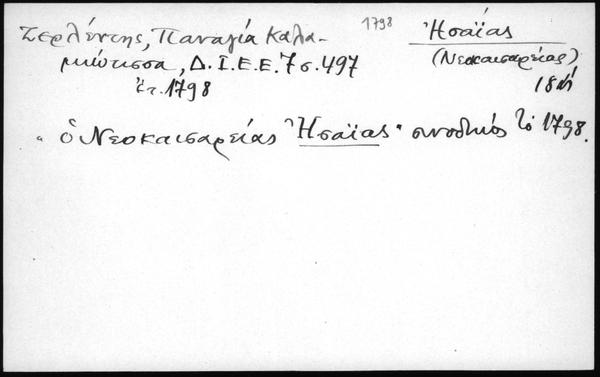 Ζερλέντης, Παναγία Καλα-
μιώτισσα, Δ.Ι.Ε.Ε. 7 σ. 497
ἔτ. 1798
1798
Ἠσαΐας
(Νεοκαισαρείας)
18
"ὁ Νεοκαισαρείας Ἠσαΐας" συνοδικός τὸ 1798.